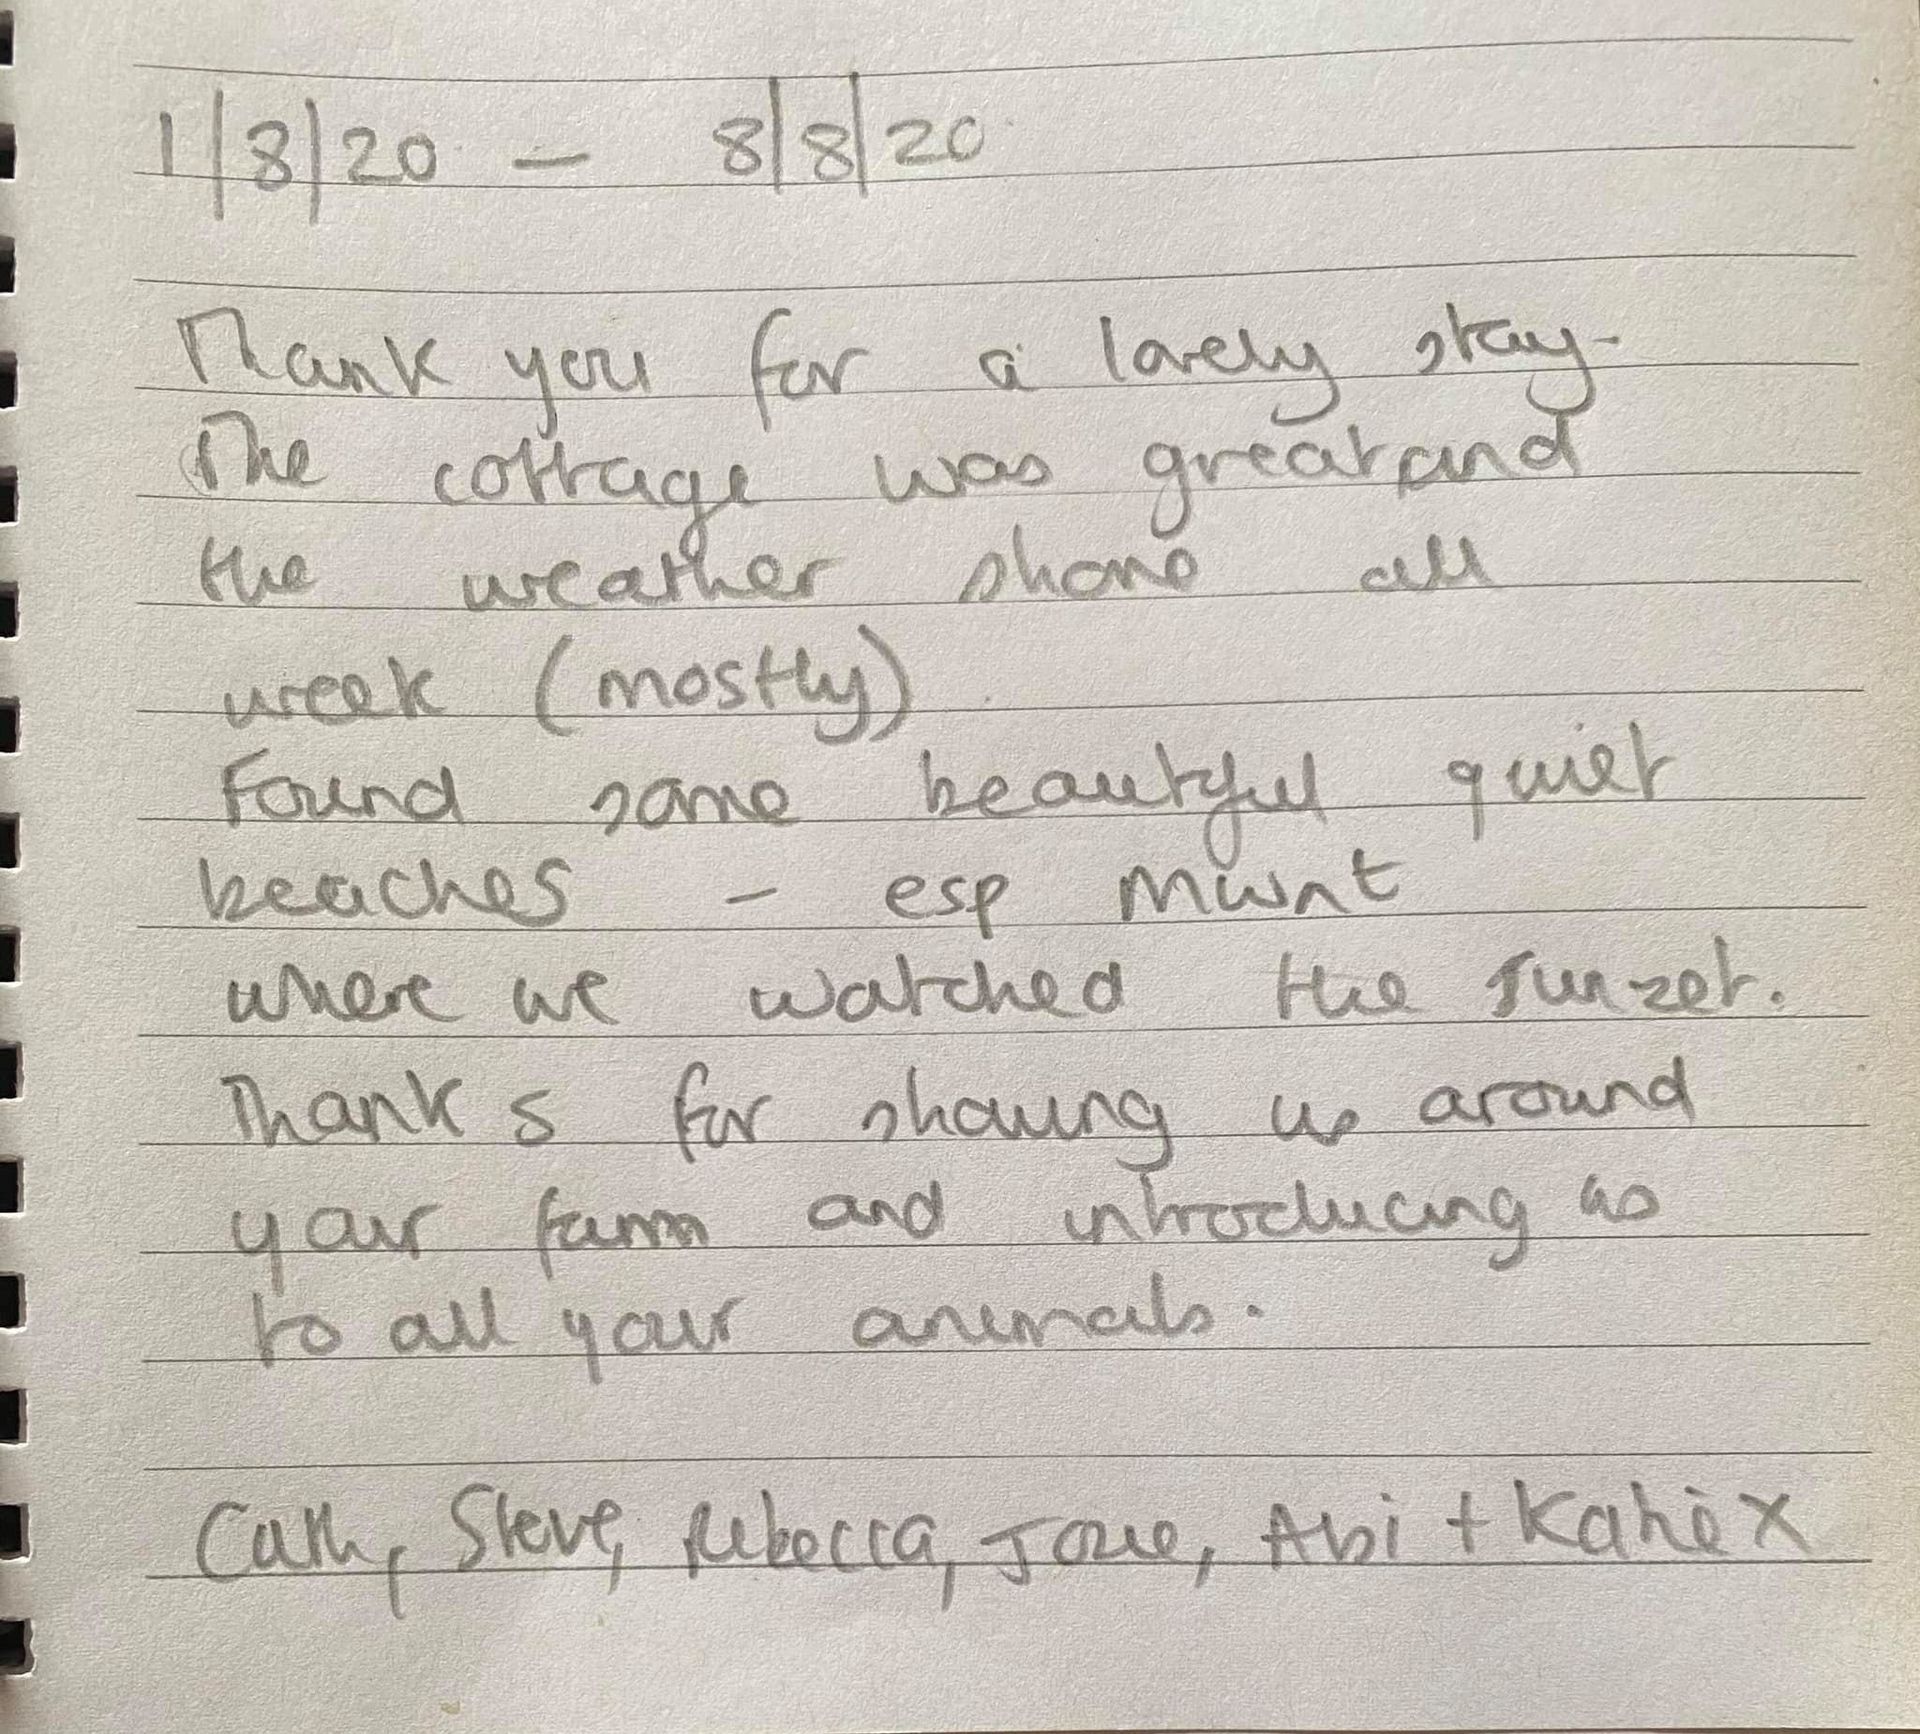 1/8/20 – 8/8/20
Thank you for a lovely stay.
The cottage was great and
the weather shone all
week (mostly)
Found some beautiful quiet
beaches – esp Mwnt
where we watched the sunset.
Thanks for showing us around
your farm and introducing us
to all your animals.
Cath, Steve, Rebecca, Josie, Abi + Katie x